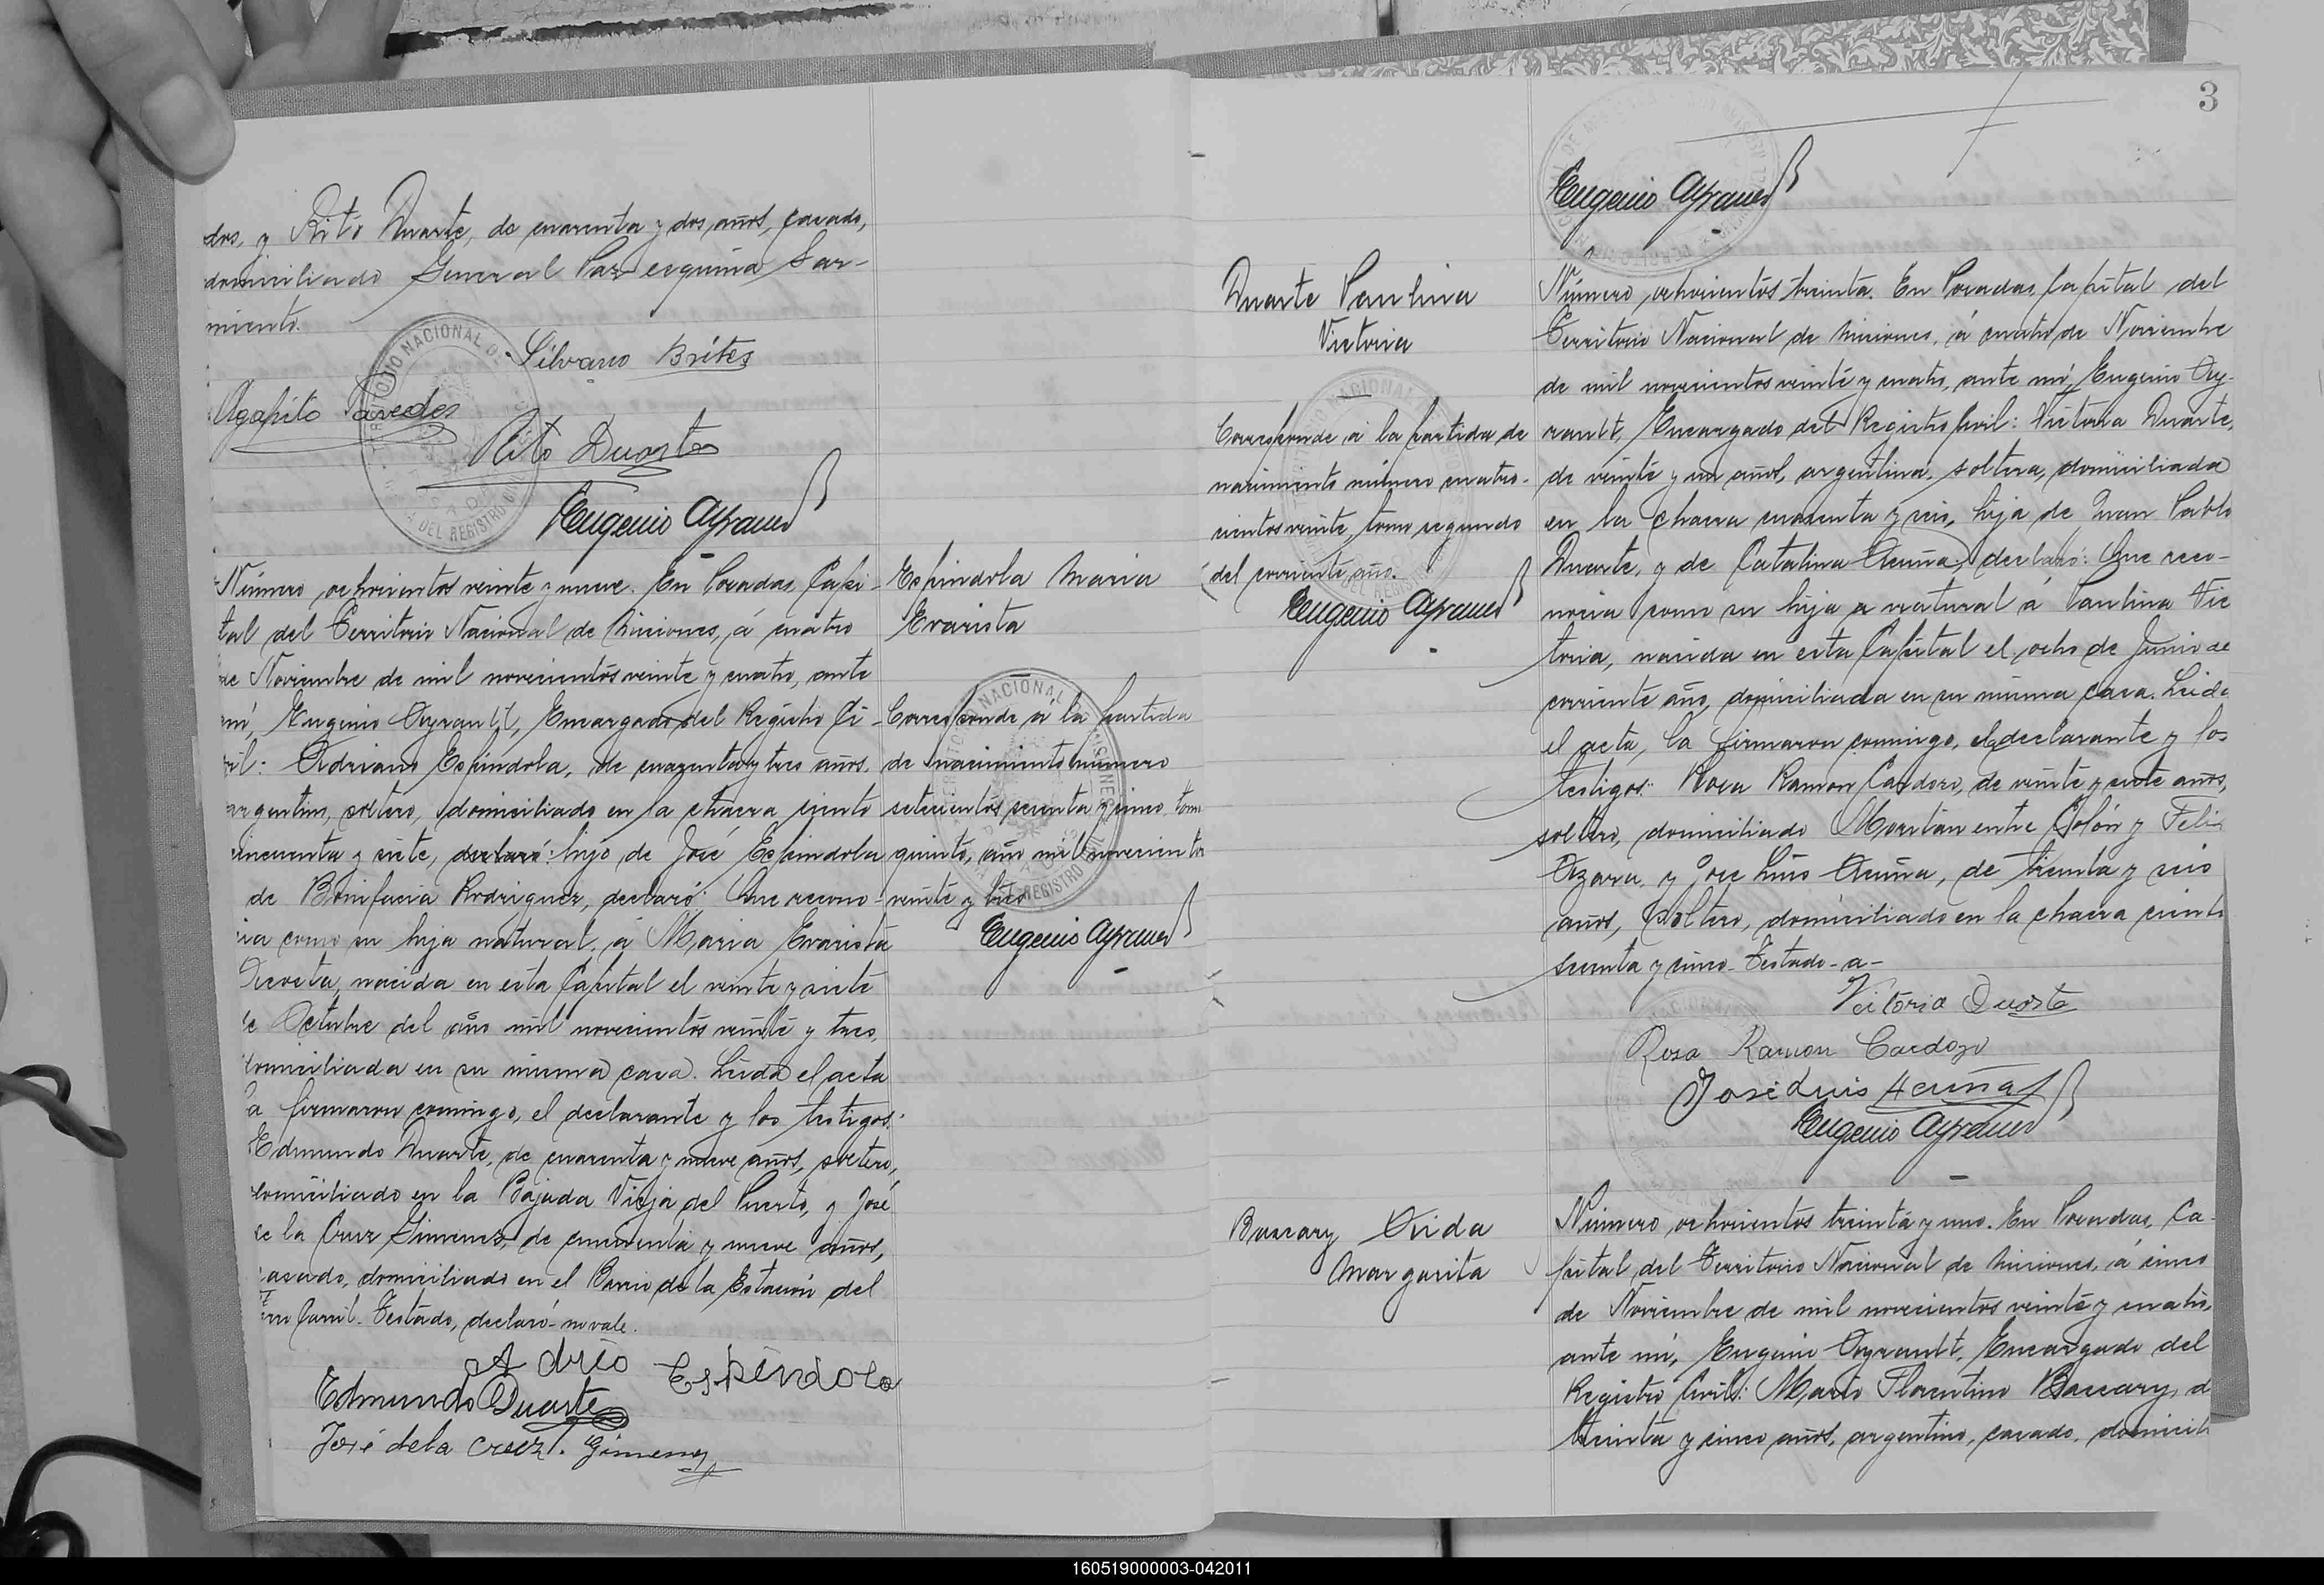 dos, y Rito Duarte, de cuarenta y dos años, casado,
domiciliado General Paz esquina Sar-
miento.
Silvano Brites
Agapito Paredes
Rito Duarte
Eugenio Ayrault
Número ochocientos veinte y nueve. En Posadas, Capi-
tal del Territorio Nacional de Misiones, á cuatro
de Noviembre de mil novecientos veinte y cuatro, ante
mí, Eugenio Ayrault, Encargado del Registro Ci-
vil: Adriano Espindola, de cuarenta y tres años,
argentino, soltero, domiciliado en la chacra ciento
cincuenta y siete, declaró: hijo de José Espindola
de Bonifacia Rodriguez, declaró: Que recono-
cia como su hija natural, á Maria Evarista
nacida en esta Capital el veinte y siete
de Octubre del año mil novecientos veinte y tres,
domiciliada en su misma casa. Leida el acta
la firmaron comigo, el declarante y los testigos:
Edmundo Duarte, de cuarenta y nueve años, soltero,
domiciliado en la Bajada Vieja del Puerto, y José
de la Cruz Gimenez, de cuarenta y nueve años,
casado, domiciliado en el Barrio de la Estación del
Ferro Carril. Testado, declaró- no vale.
Adrio Espindola
Edmundo Duarte
José de la Cruz. Gimenez
Espindola Maria
Evarista
Corresponde á la partida
de nacimiento número
setecientos sesenta y cinco, tomo
quinto, año mil novecientos
veinte y tres
Eugenio Ayrault
3
Eugenio Ayrault
Duarte Paulina
Victoria
Corresponde á la partida de
nacimiento número cuatro-
cientos veinte, tomo segundo
del corriente año.
Eugenio Ayrault
Número ochocientos treinta. En Posadas, Capital del
Territorio Nacional de Misiones, á cuatro de Noviembre
de mil novecientos veinte y cuatro, ante mí, Eugenio Ay-
rault, Encargado del Registro Civil: Victoria Duarte,
de veinte y un años, argentina, soltera, domiciliada
en la chacra cuarenta y seis, hija de Juan Pablo
Duarte, y de Catalina Acuña, declaró: Que reco-
nocia como su hija a natural á Paulina Vic
toria, nacida en esta Capital el ocho de Junio de
corriente año, domiciliada en su misma casa. Leida
el acta, la firmaron comigo, el declarante y los
testigos: Rosa Ramon Cardozo, de veinte y siete años,
soltero, domiciliado Moritán entre Colón y Felix
Azara, y Jose Luis Acuña, de treinta y seis
años, soltero, domiciliado en la chacra ciento
sesenta y cinco. Testado-a-
Victoria Duarte
Rosa Ramon Cardozo
José Luis Acuña
Eugenio Ayrault
Baccary Aida
Margarita
Número ochocientos treinta y uno. En Posadas, Ca-
pital del Territorio Nacional de Misiones, á cinco
de Noviembre de mil novecientos veinte y cuatro,
ante mí, Eugenio Ayrault, Encargado del
Registro Civil: Mario Florentino Baccary, d
treinta y cinco años, argentino, casado, domicili
160519000003-042011